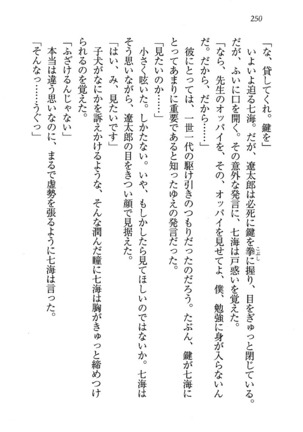 250
「な、貸してくれ。鍵を」
いよいよ迫る七海。だが、遼太郎は必死に鍵を拳に握り、目をぎゅっと閉じている。
だが、ふいに口を開く。その意外な発言に、七海は戸惑いを覚えた。
「なら、先生のオッパイを、その、オッパイを見せてよ、僕、勉強に身が入らないん
だ。だから、だから……」
彼にとっては、一世一代の駆け引きのつもりだったのだろう。たぶん、鍵が七海に
とってあまりに重要であると知ったゆえの発言だった。
「見たいのか……」
小さく呟いた。しかたない。いや、もしかしたら見てほしいのではないか。七海は
そう思いながら、遼太郎の目をきつい顔で見据えた。
「はい、み、見たいです」
子犬がなにかを訴えかけるような、そんな潤んだ瞳に七海は胸がきゅっと締めつけ
られた。
「ふざけるんじゃない」
本当は違う思いなのに、まるで虚勢を張るように七海は言った。
「そんなっ……うぐっ」